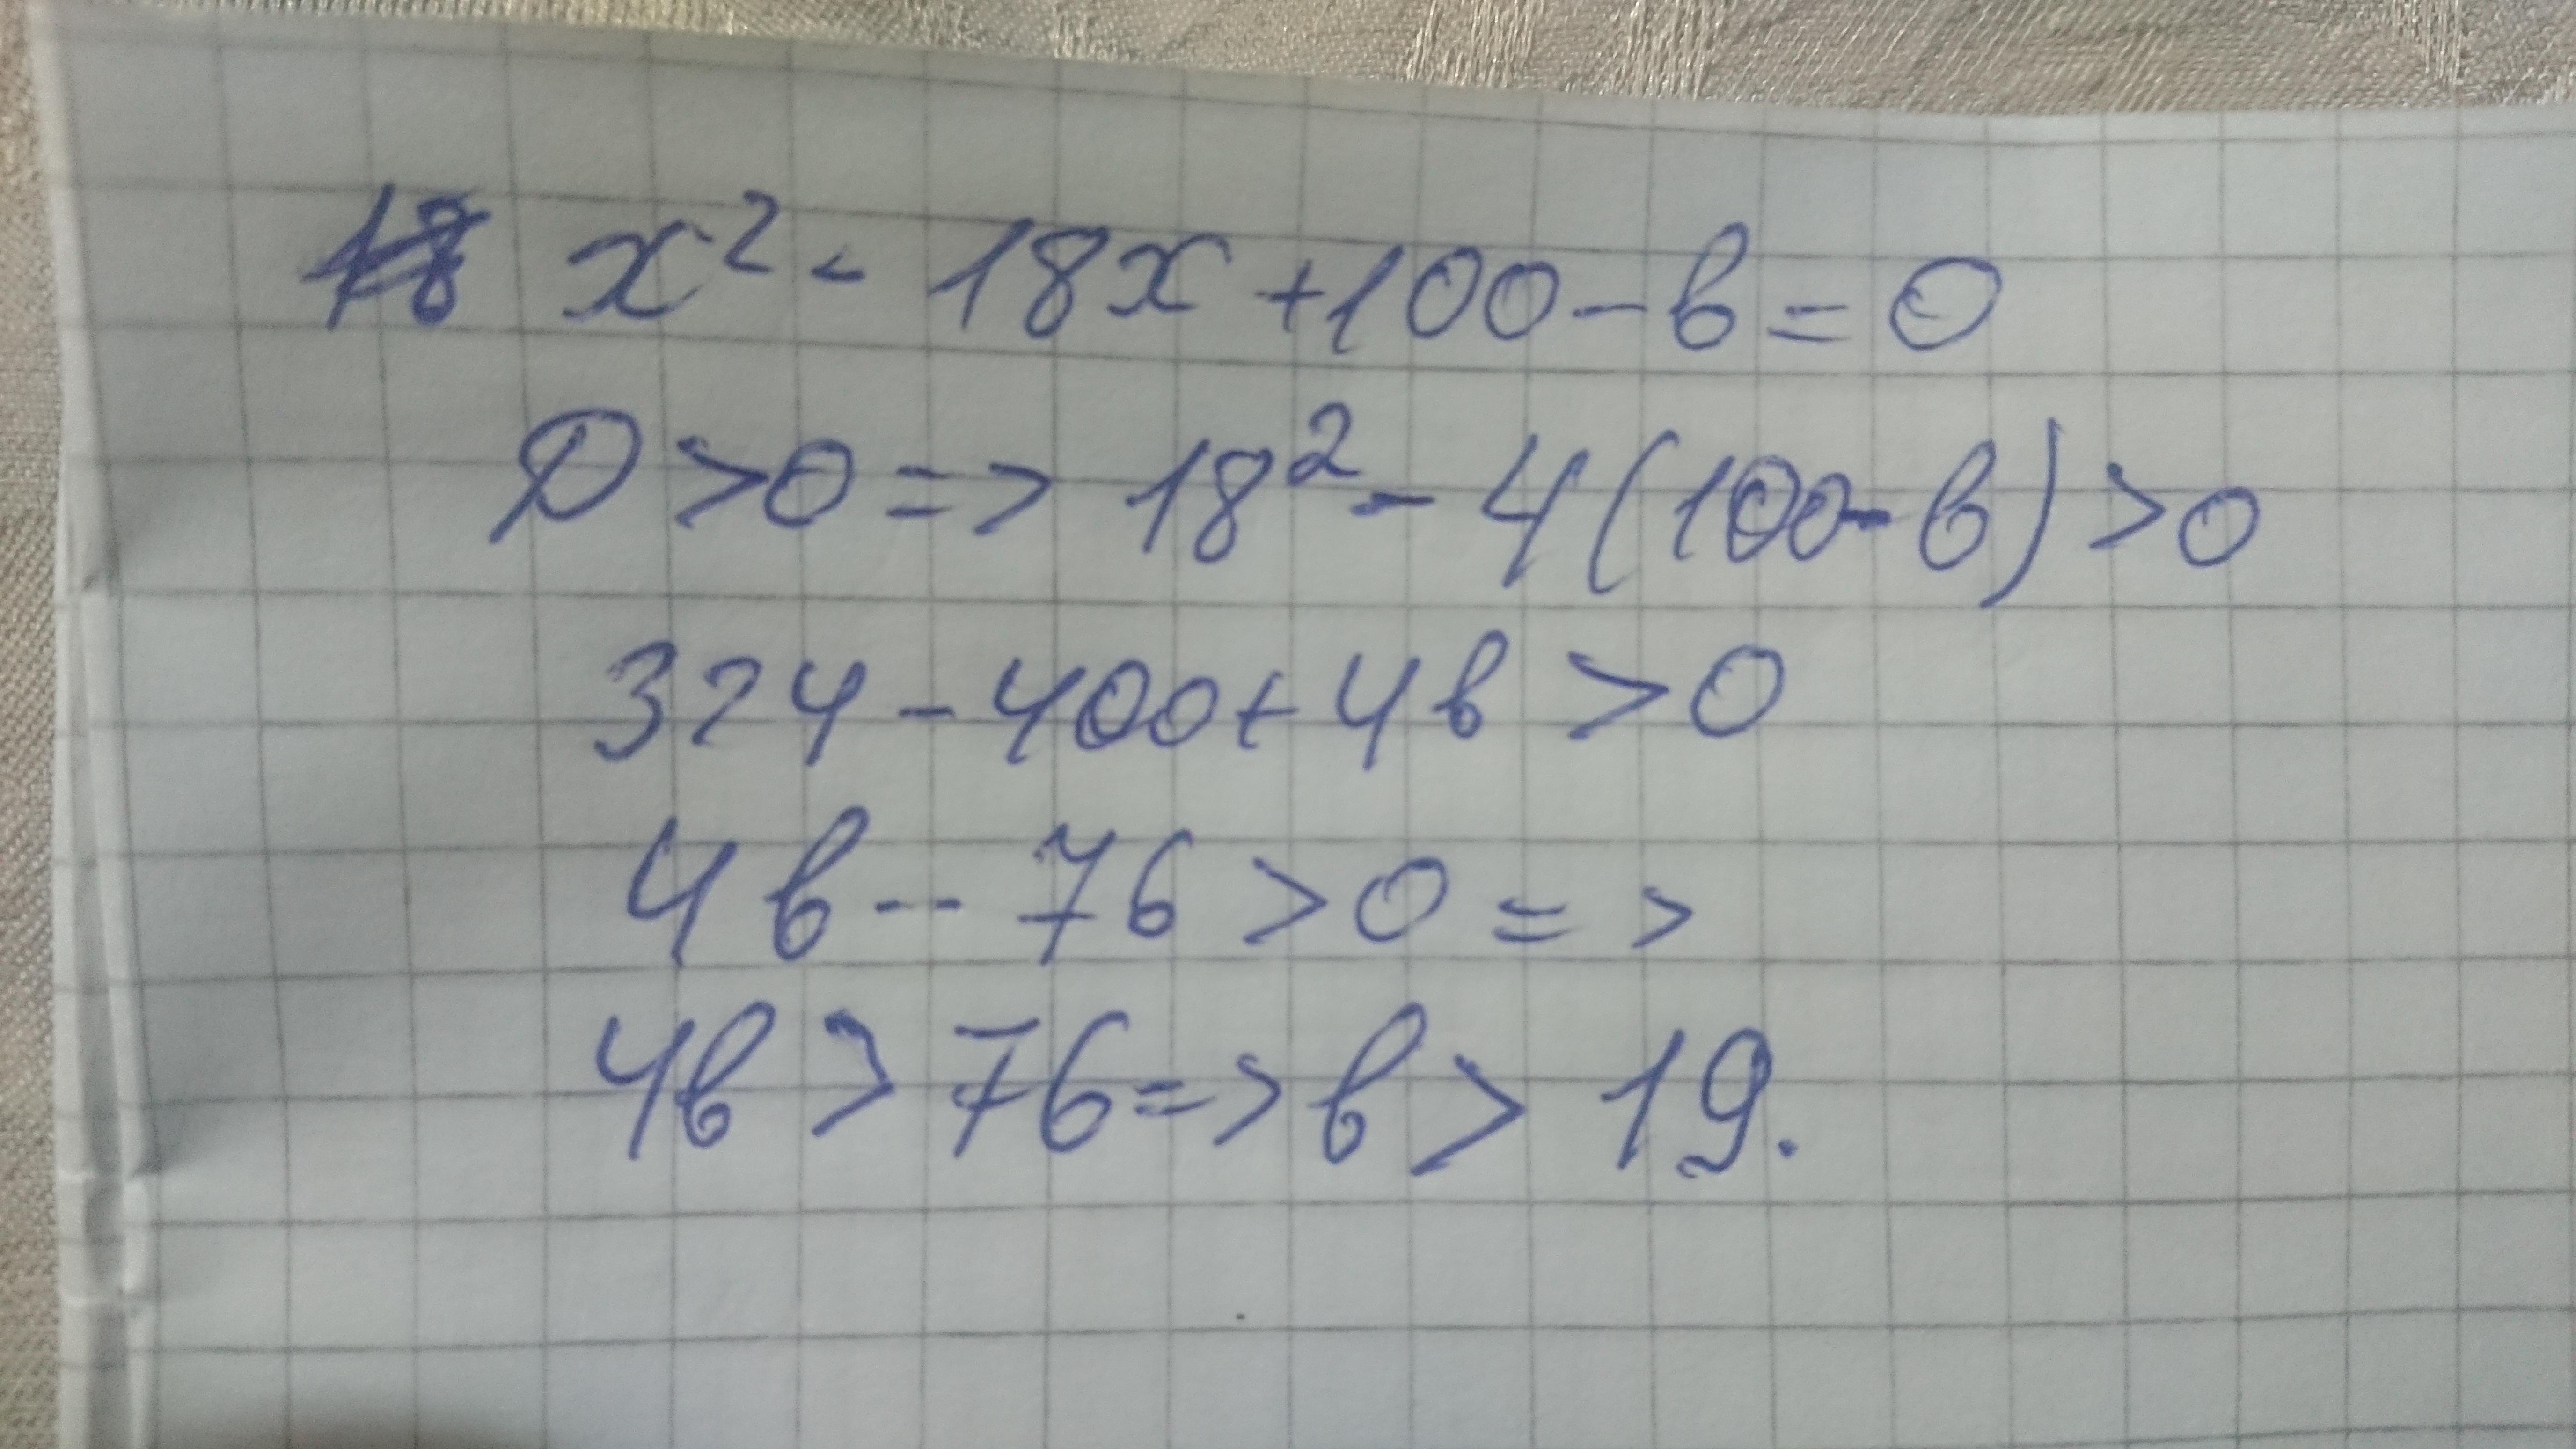 x² - 18x + 100 - b = 0
D > 0 => 18² - 4(100 - b) > 0
324 - 400 + 4b > 0
4b -- 76 > 0 = >
4b > 76 => b > 19.